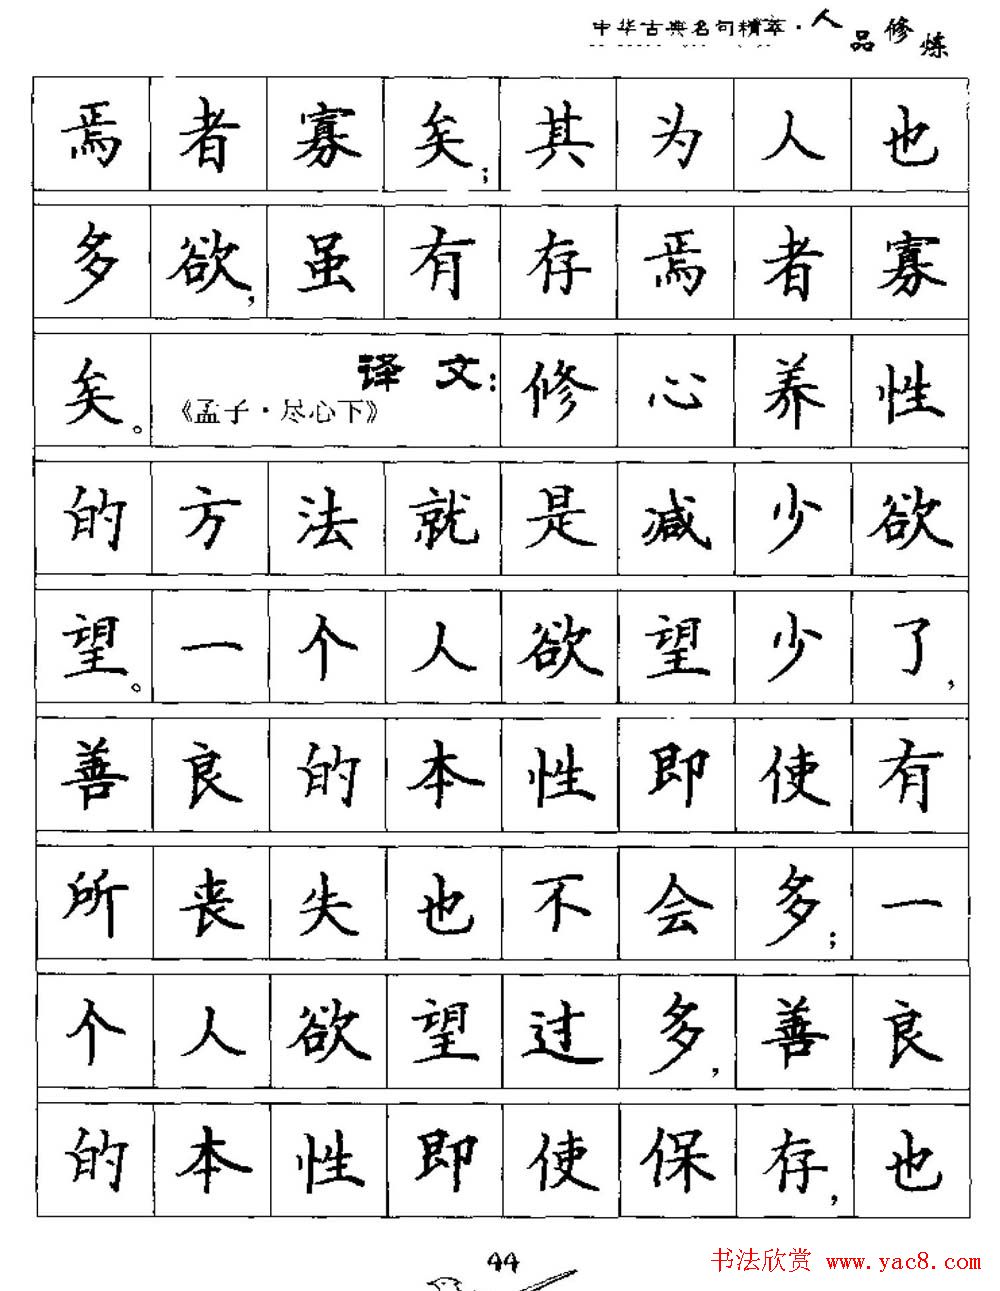 中华古典名句精萃·人品修炼
焉者寡矣;其为人也
多欲,虽有存焉者寡
矣。《孟子·尽心下》译文:修心养性
的方法就是减少欲
望。一个人欲望少了,
善良的本性即使有
所丧失也不会多;一
个人欲望过多,善良
的本性即使保存,也
44
书法欣赏 www.yac8.com